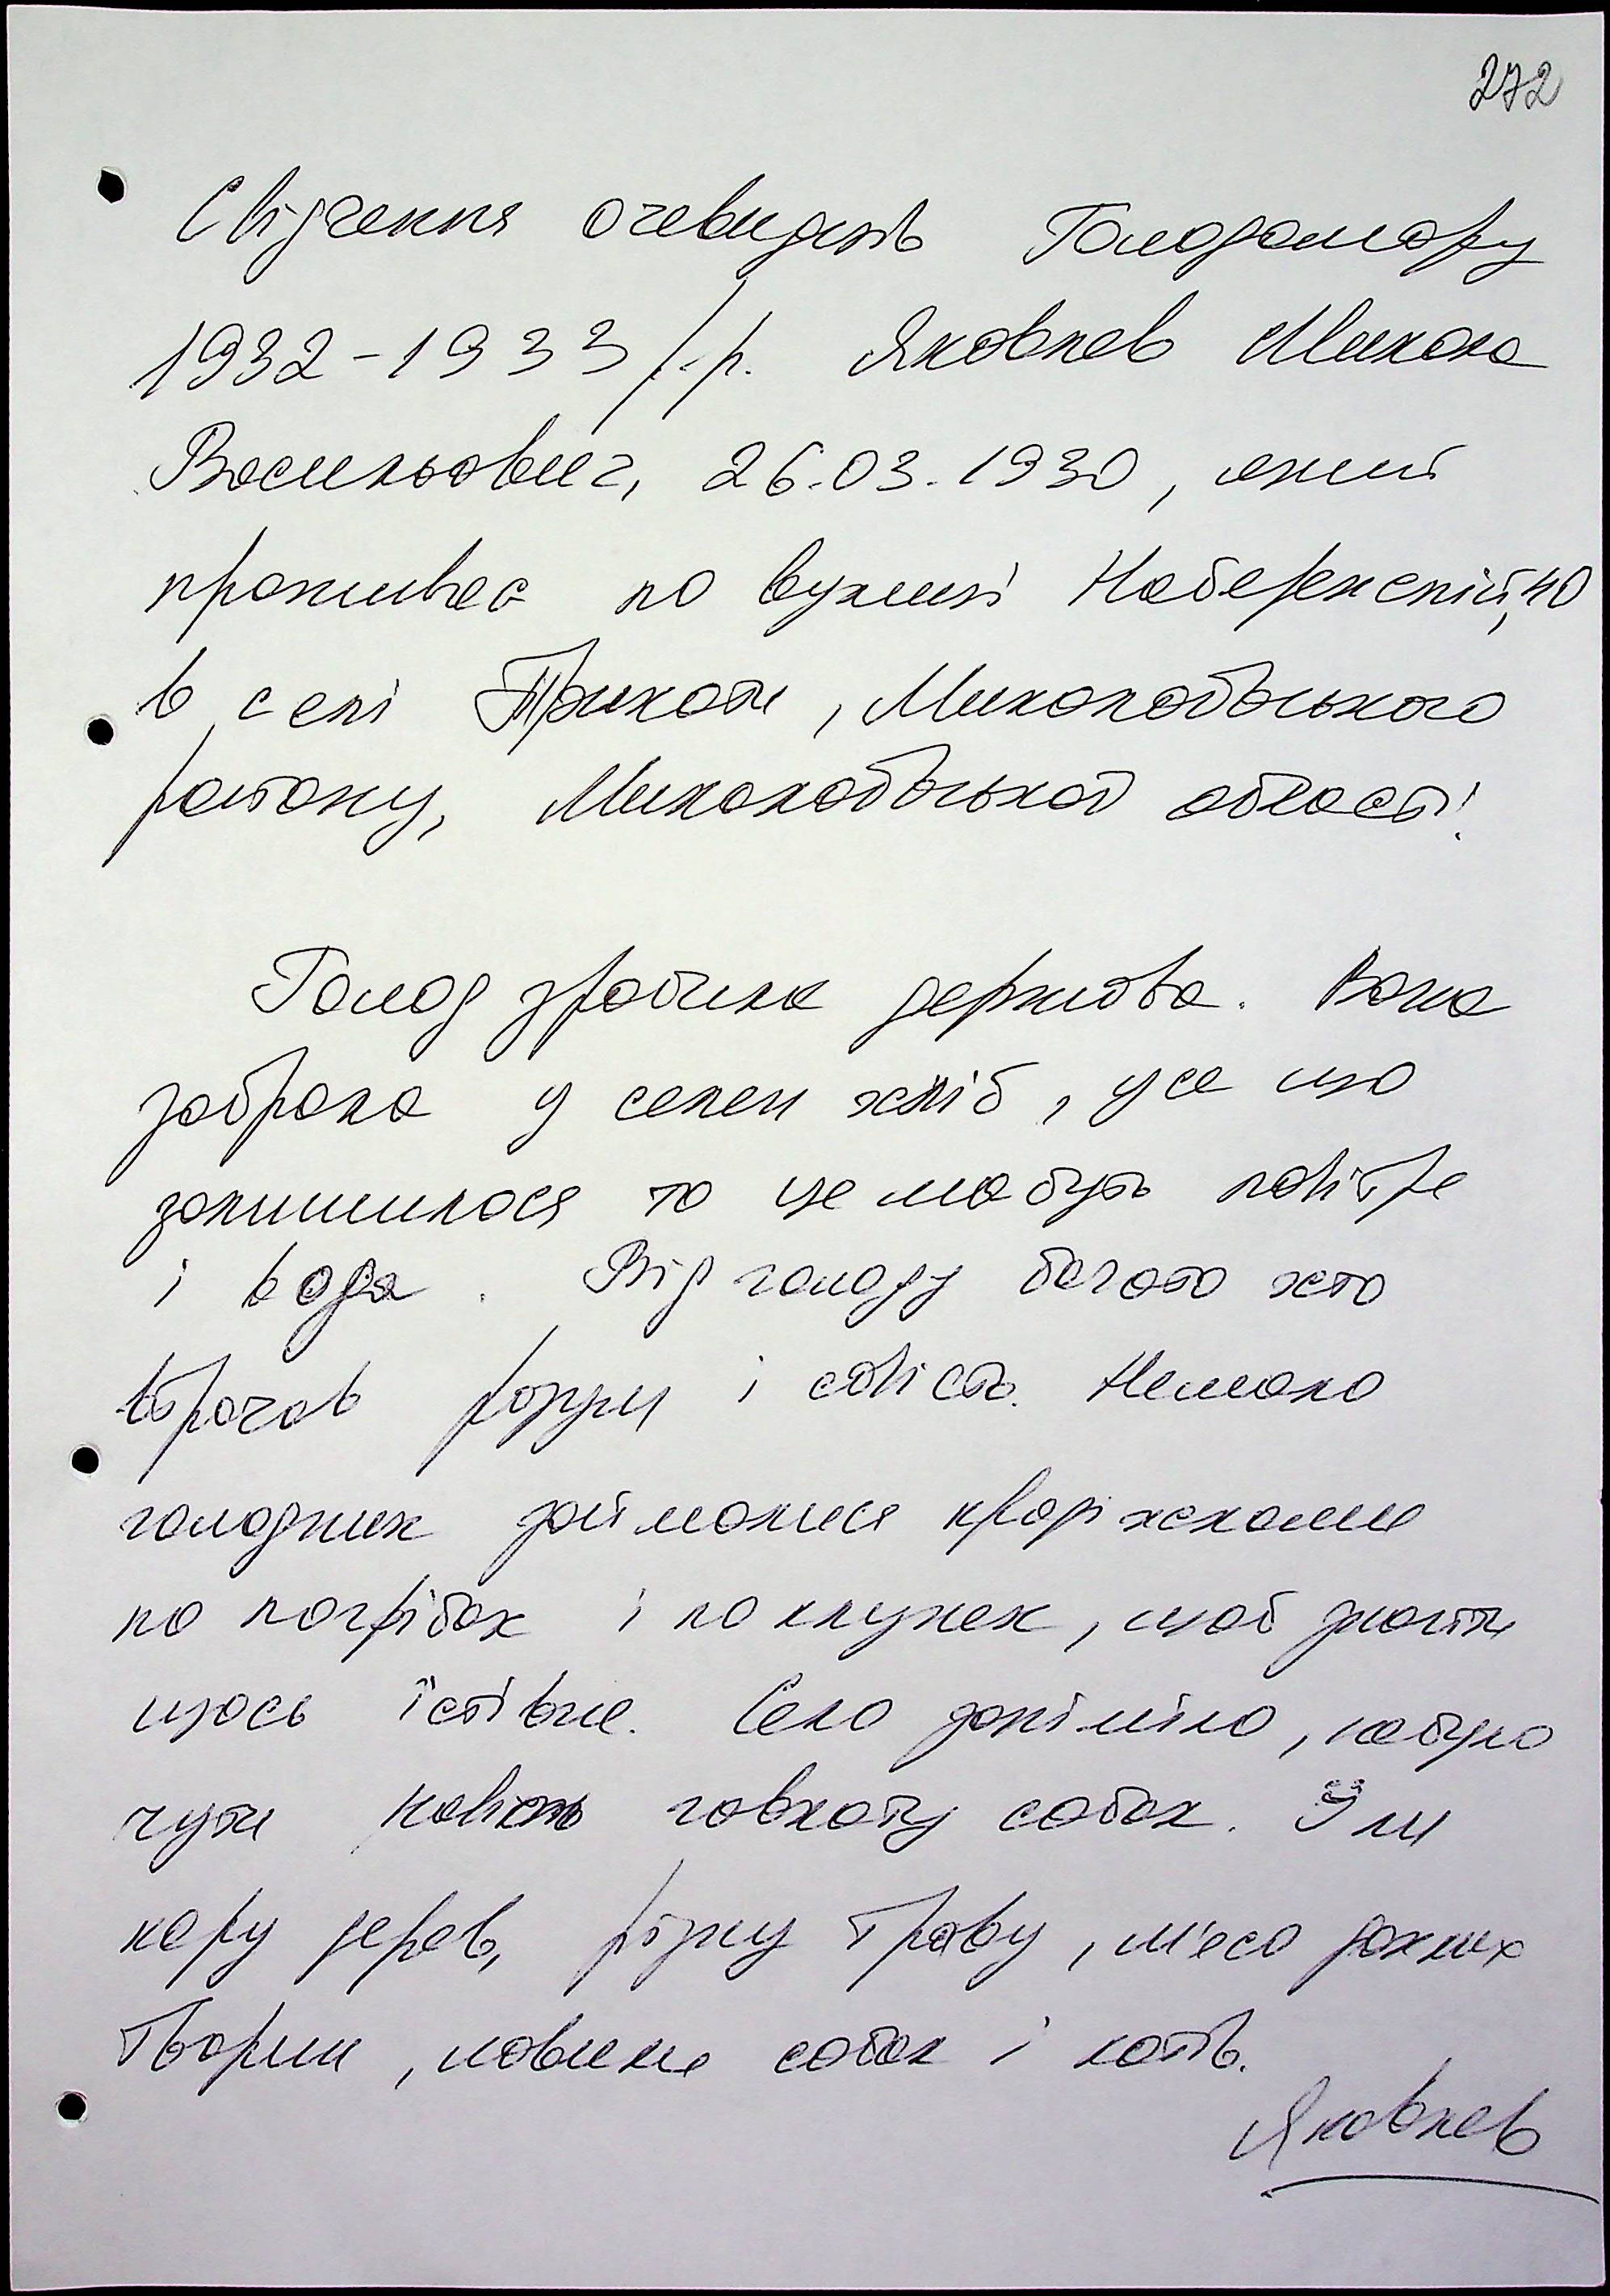 272
Свідчення очевидців Голодомору
1932-1933 р.р. Яковлев Микола
Васильович, 26.03.1930, який
проживає по вулиці Набережній, 40
в селі Трихати, Миколаївського
району, Миколаївської області.
Голод зробила держава. Вона
забрала у селян хліб, усе що
залишилося то це мабуть повітря
і вода. Від голоду багато хто
втрачав розум і совість. Чимало
голодних займалися крадіжками
по погрібах і по клунях, щоб знайти
щось їстівне. Село заніміло, не було
чути навіть гавкоту собак. Їли
кору дерев, різну траву, м'ясо дохлих
тварин, ловили собак і котів.
Яковлев